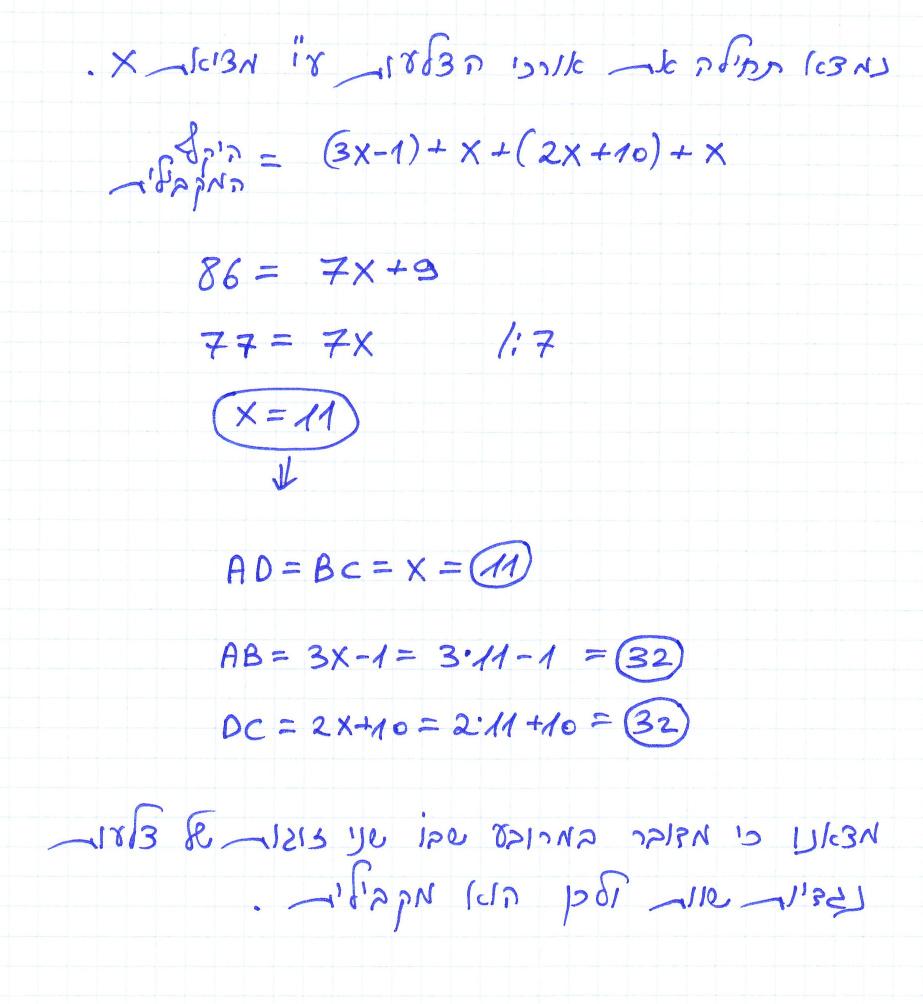 נמצא תחילה את אורכי הצלעות ע"י מציאת x.
היקף המקבילית = (3x-1) + x + (2x+10) + x
86 = 7x+9
77 = 7x /:7
x = 11
⇓
AD = BC = x = 11
AB = 3x-1 = 3·11-1 = 32
DC = 2x+10 = 2·11+10 = 32
מצאנו כי מדובר במרובע שבו שני זוגות של צלעות
נגדיות שוות ולכן הוא מקבילית.